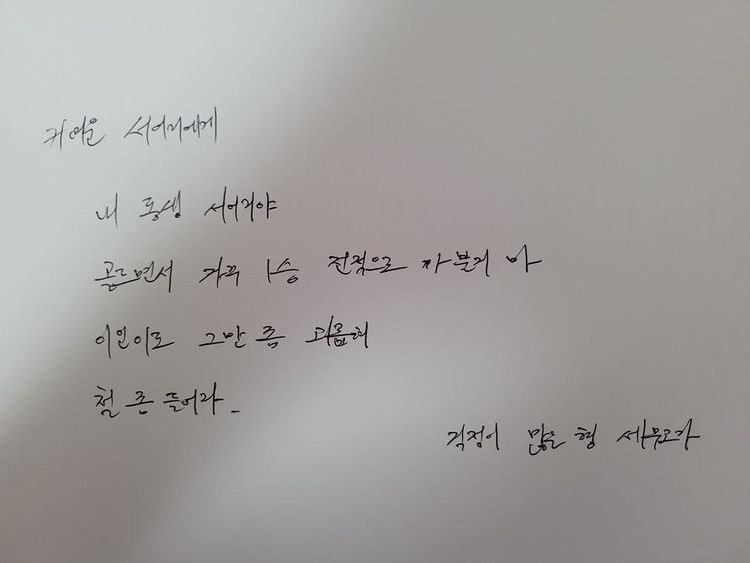 귀여운 서어리에게
내 동생 서어리야
골드면서 자꾸 1승 전적으로 까불지 마
이인이도 그만 좀 괴롭혀
철 좀 들어라_
걱정이 많은 형 세무로가